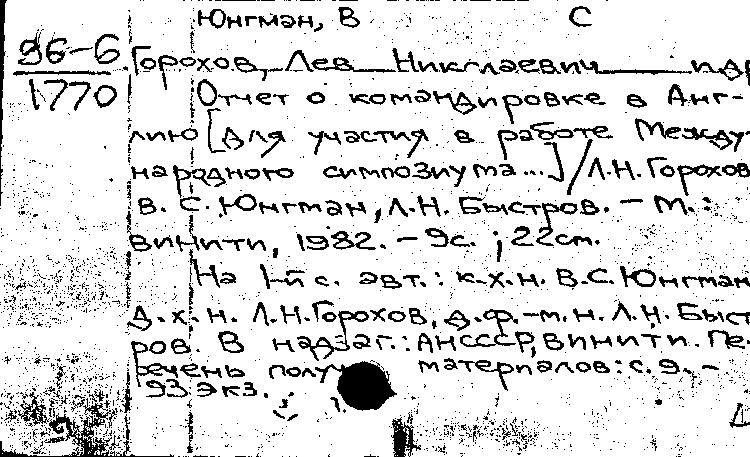 Юнгман, В С
96-6
1770
Горохов, Лев Николаевич и др
Отчет о командировке в Анг-
лию [для участия в работе Между-
народного симпозиума...] / Л.Н. Горохов
В. С. Юнгман, Л.Н. Быстров. - М.:
ВИНИТИ, 1982. - 9с. ; 22см.
На 1-й с. авт.: к.х.н. В.С. Юнгман
д.х.н. Л.Н. Горохов, д.ф.-м.н. Л.Н. Быст
ров. В надзаг.: АНСССР, ВИНИТИ. Пе-
речень получ материалов: с. 9. -
93 экз.